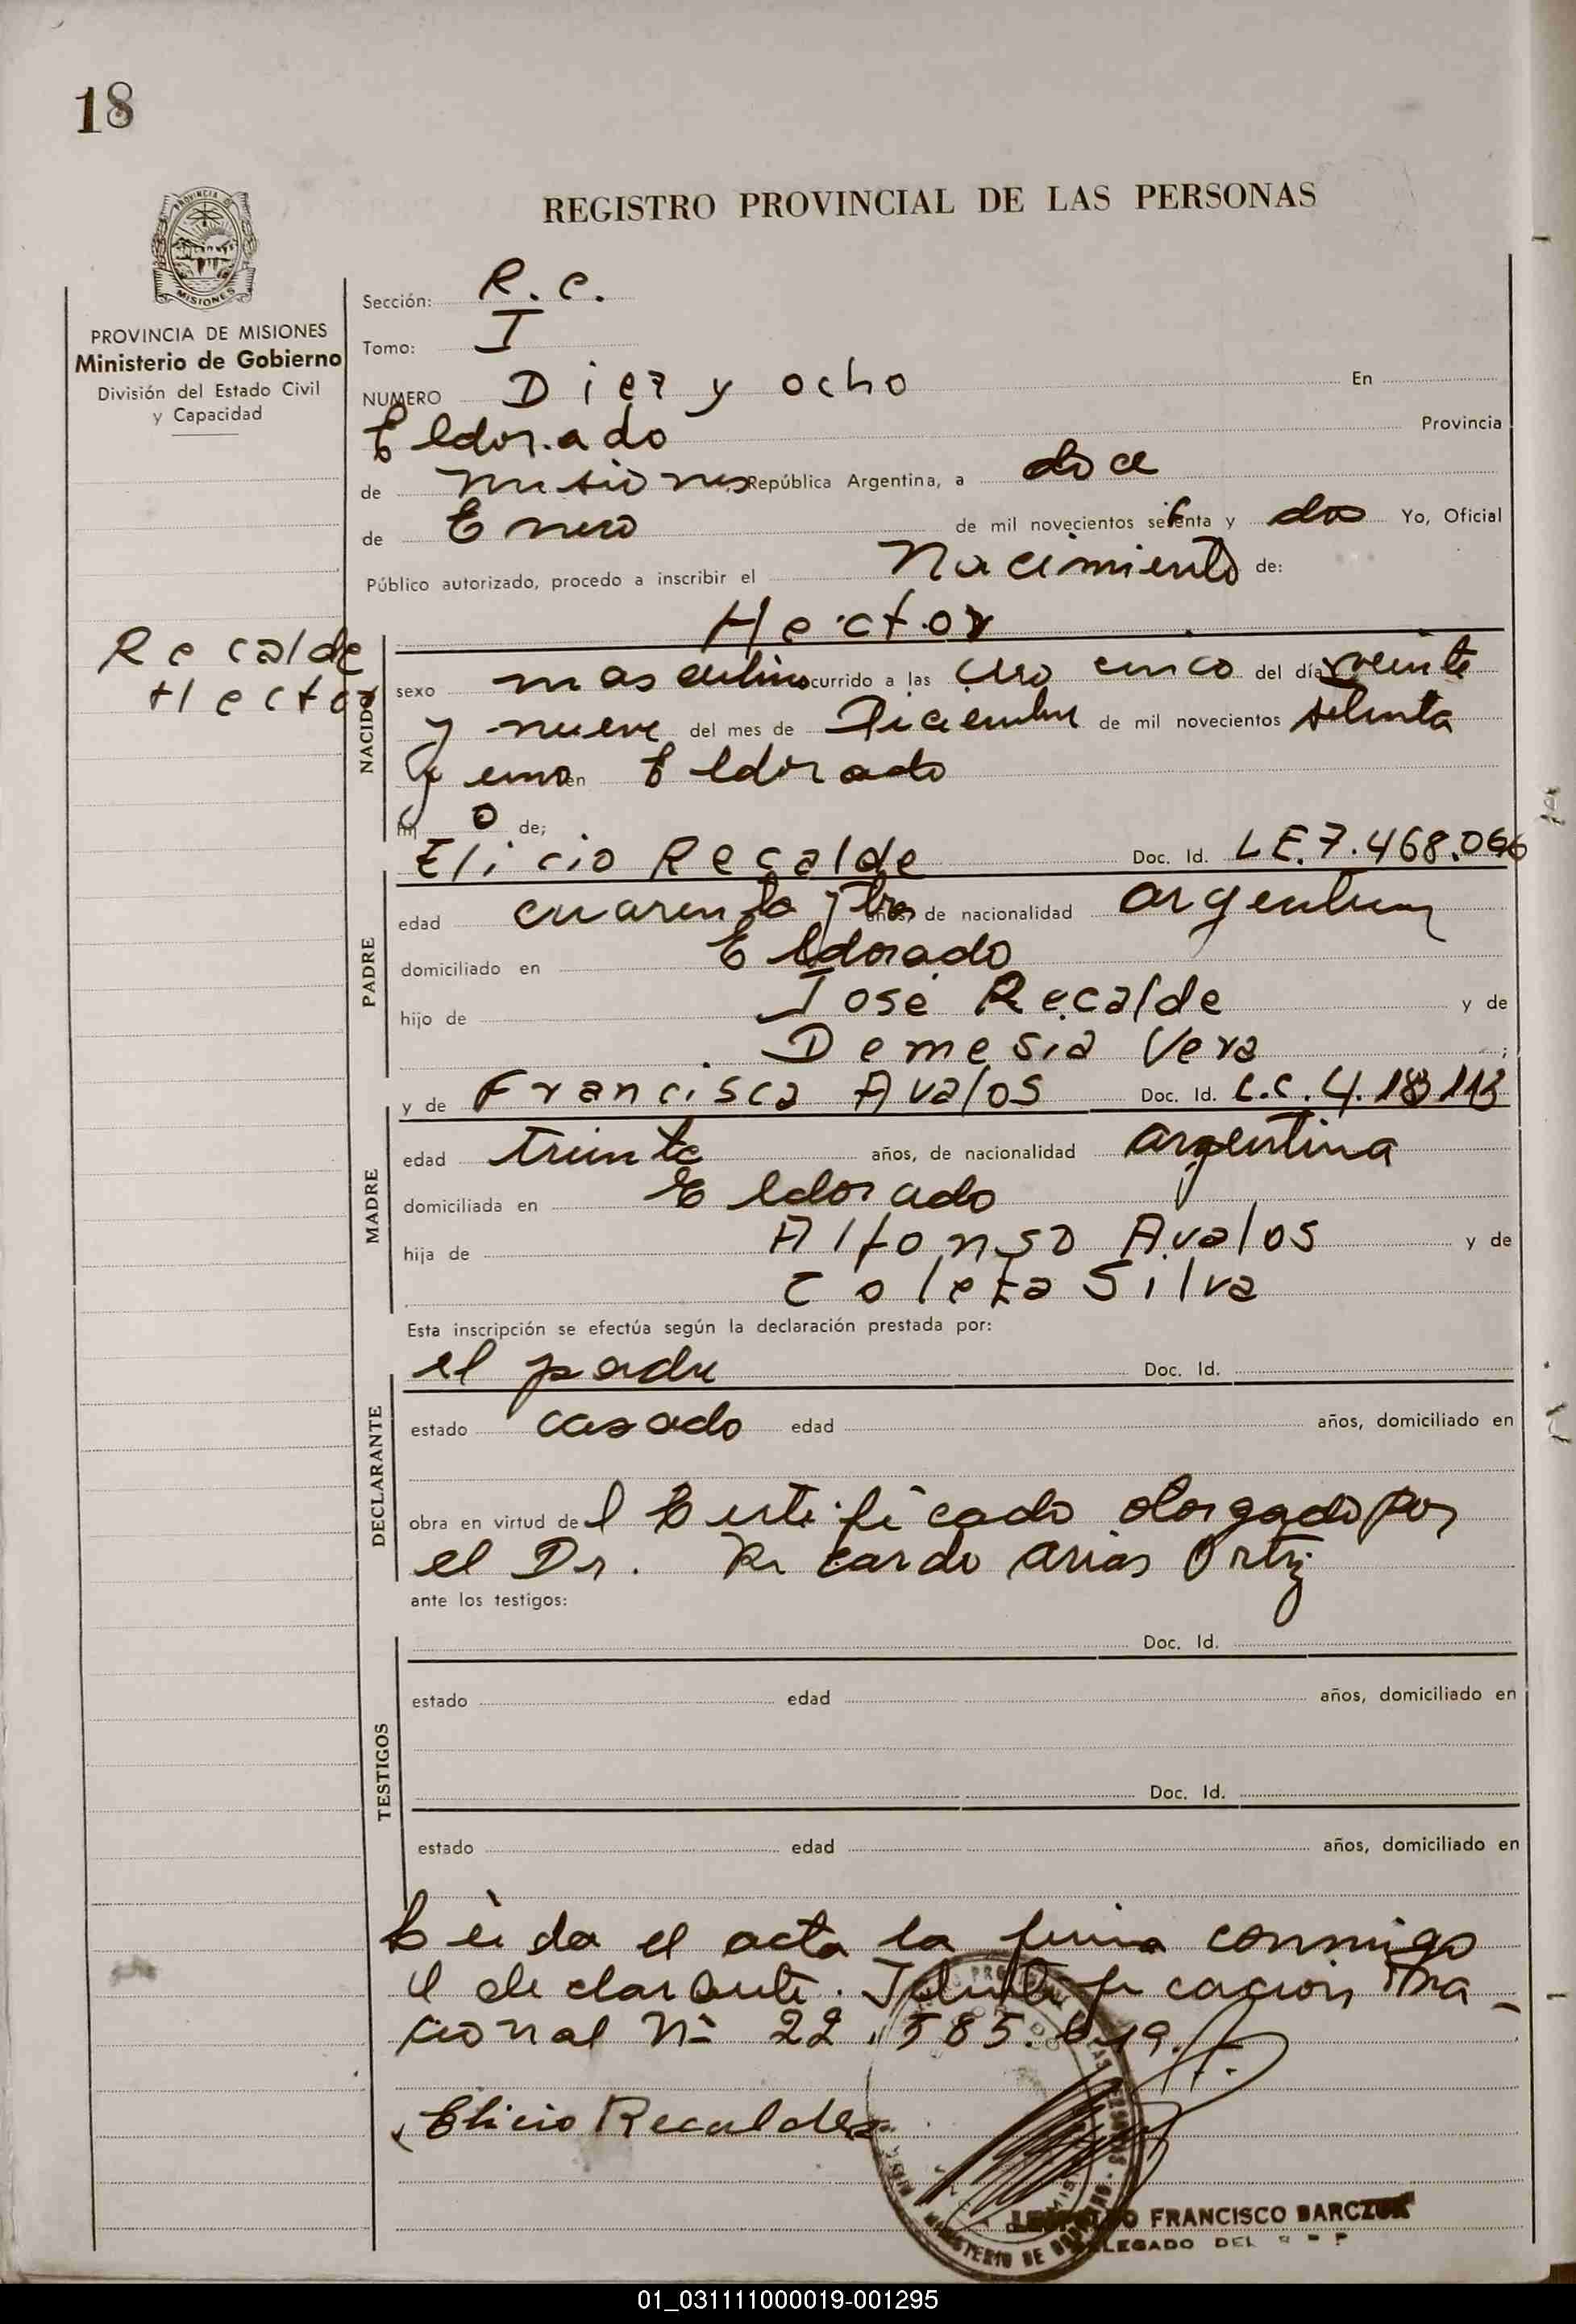 18
REGISTRO PROVINCIAL DE LAS PERSONAS
PROVINCIA DE MISIONES
MISIONES
PROVINCIA DE MISIONES
Ministerio de Gobierno
División del Estado Civil
y Capacidad
Sección: R.C.
Tomo: I
NUMERO Diez y ocho En
Eldorado Provincia
de Misiones República Argentina, a doce
de Enero de mil novecientos setenta y dos Yo, Oficial
Público autorizado, procedo a inscribir el Nacimiento de:
Recalde
Hector
NACIDO
Hector
sexo masculino ocurrido a las cero cinco del día veinte
y nueve del mes de Diciembre de mil novecientos setenta
y uno en Eldorado
hijo de;
PADRE
Elicio Recalde Doc. Id. LE.7.468.066
edad cuarenta y tres años, de nacionalidad argentina
domiciliado en Eldorado
hijo de José Recalde y de
Demesia Vera ;
MADRE
y de Francisca Avalos Doc. Id. L.C.4.
edad treinta años, de nacionalidad argentina
domiciliada en Eldorado
hija de Alfonso Avalos y de
Coleta Silva
Esta inscripción se efectúa según la declaración prestada por:
DECLARANTE
el padre Doc. Id.
estado casado edad años, domiciliado en
obra en virtud del Certificado otorgado por
el Dr. Ricardo Arias Ortiz
ante los testigos:
TESTIGOS
Doc. Id.
estado edad años, domiciliado en
Doc. Id.
estado edad años, domiciliado en
Leída el acta la firma conmigo
el declarante. Identificación Na-
cional Nº 22.585.
Elicio Recalde
MINISTERIO DE GOBIERNO
FRANCISCO BARCZUK
DELEGADO DEL R P P
01_031111000019-001295